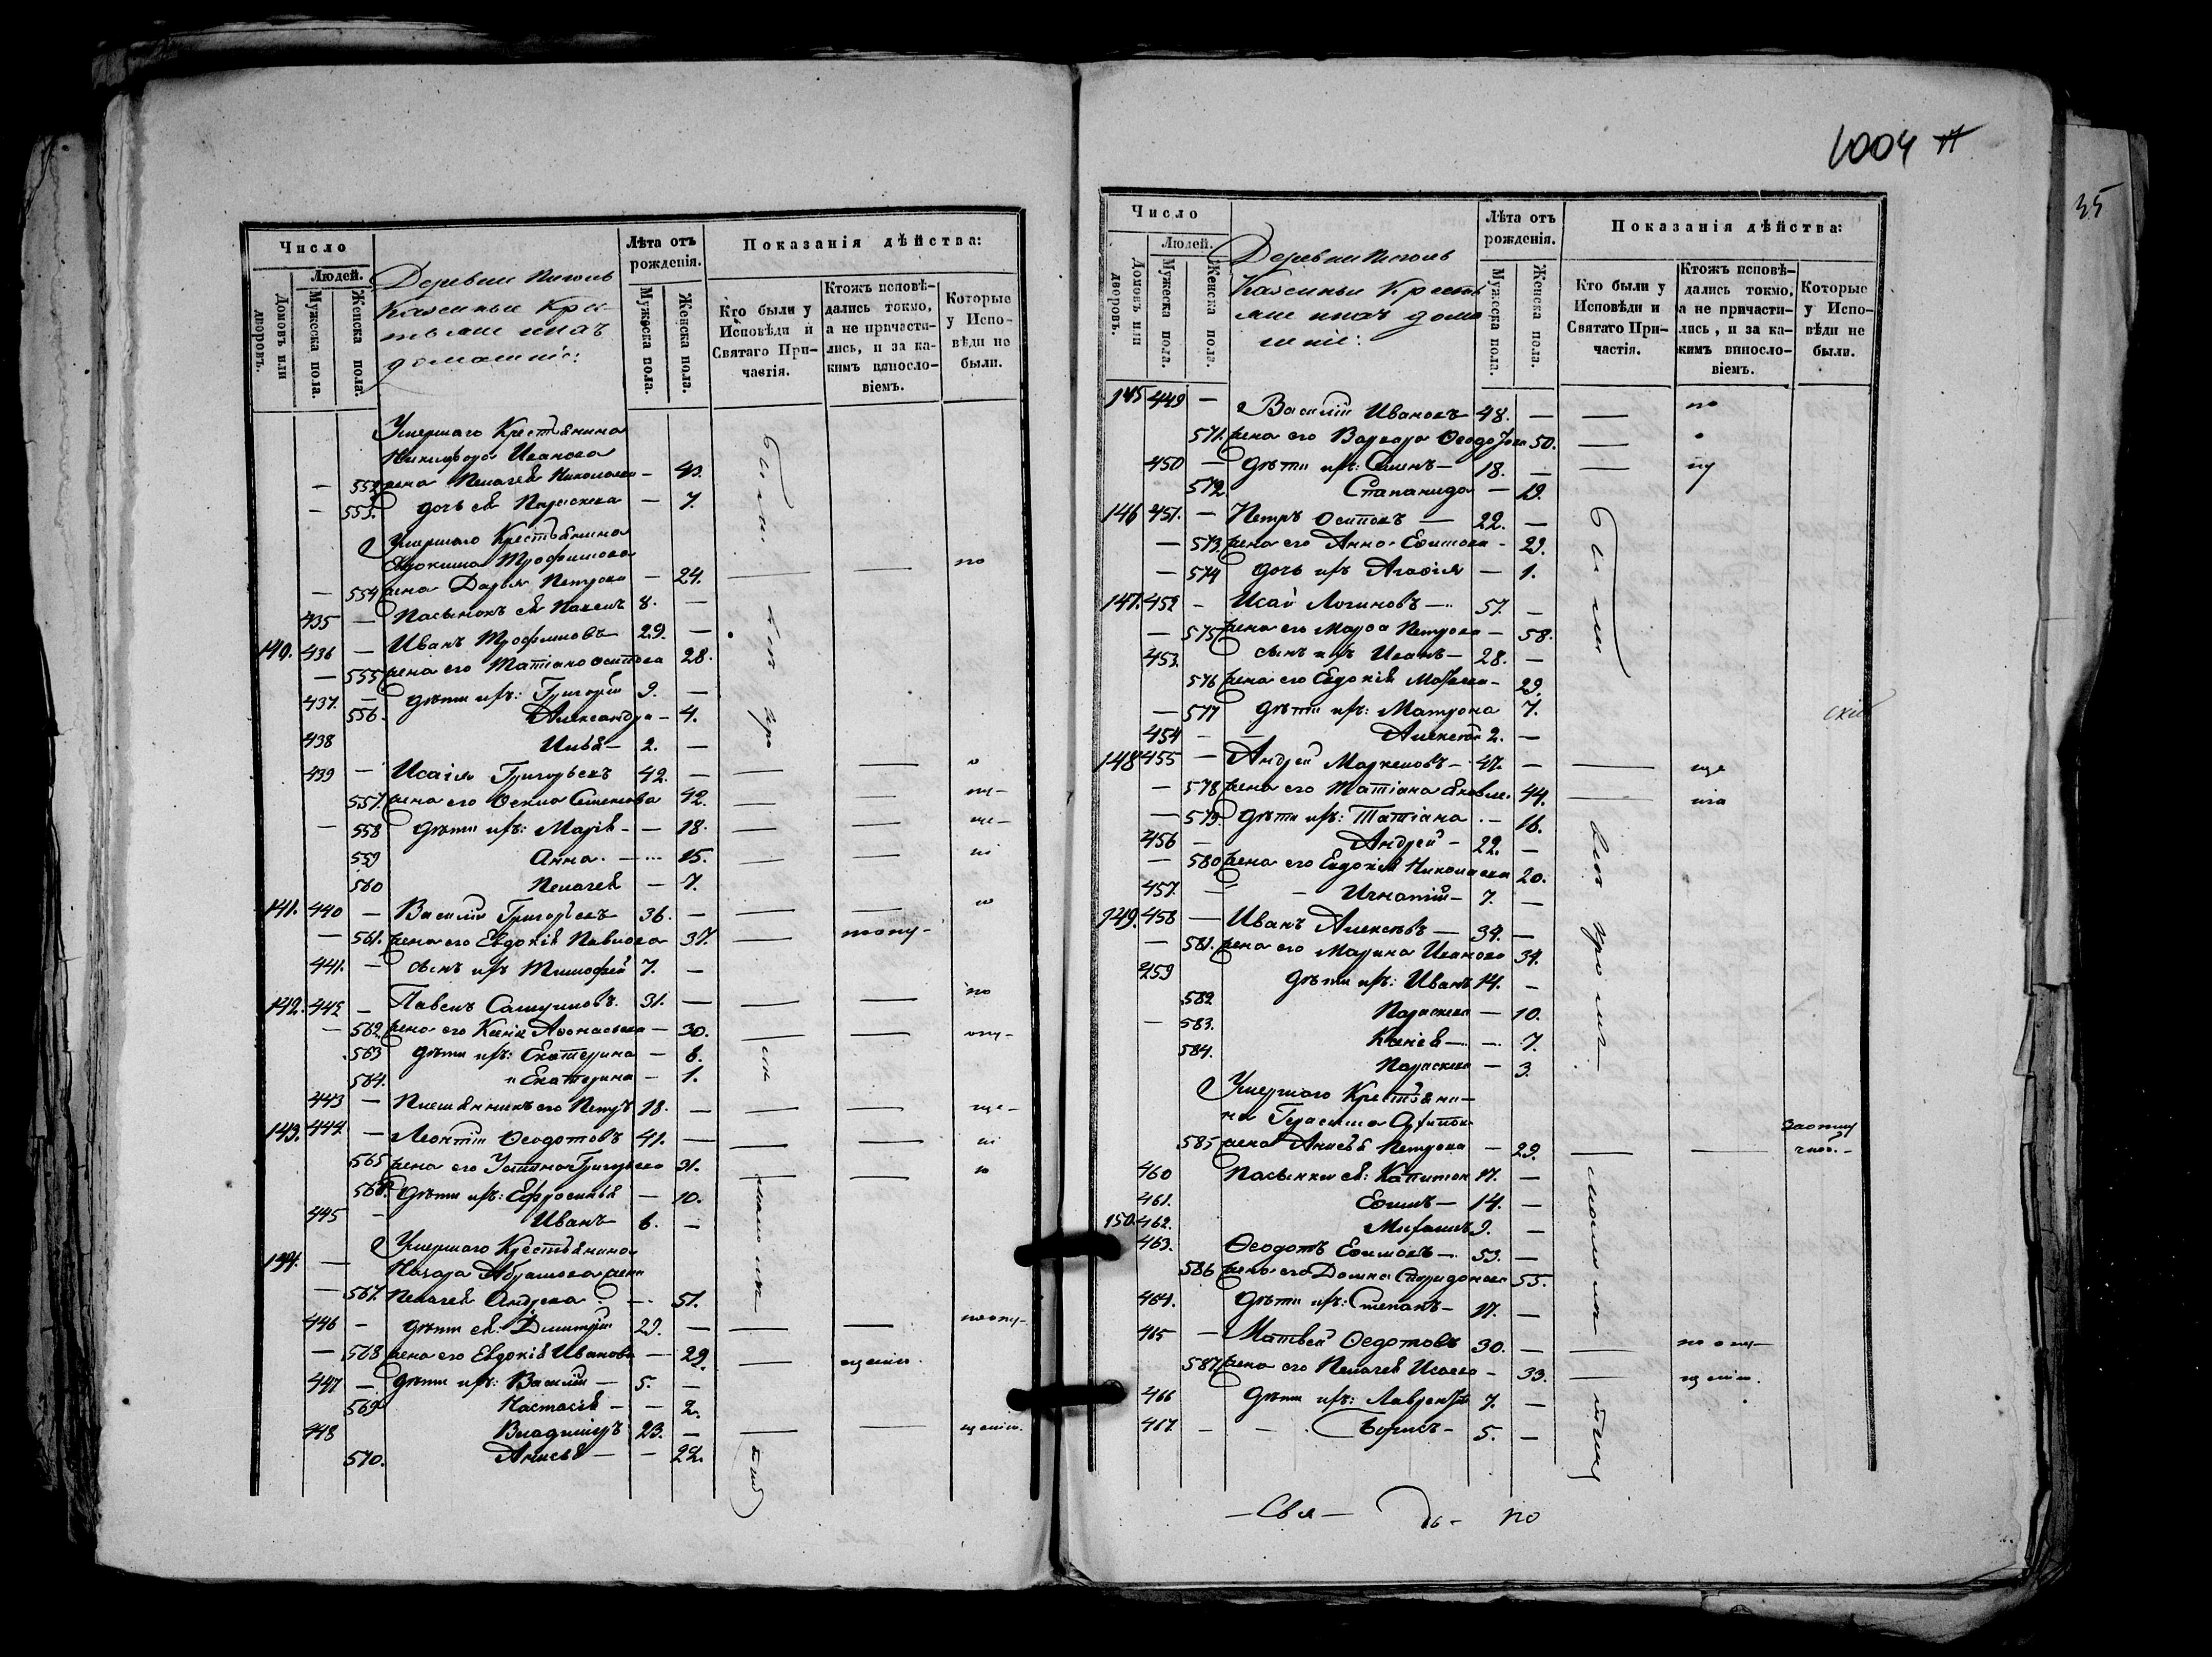 Число
Людей.
Домовъ или дворовъ.
Мужеска пола.
Женска пола.
Деревни
Казенные Кре-
стьяне и ихъ
домашніе:
Лѣта отъ рожденія.
Мужеска пола.
Женска пола.
Показанія дѣйства:
Кто были у Исповѣди и Святаго При-частія.
Ктожъ исповѣ-дались токмо, а не причасти-лись, и за ка-кимъ винословіемъ.
Которые у Испо-вѣди не были.
Умершаго Крестьянина
Никифора Иванова
— 552 жена Пелагея Николаева —
— 553. дочь ея Параскева — 7.
Умершаго Крестьянина
Евдокима Трофимова
— 554 жена Дарья Петрова — 24. — — по
435 — Пасынокъ ея Павелъ 8. —
140. 436 — Иванъ Трофимовъ 29. —
— 555 жена его Татіана Осипова 28.
437. — дѣти ихъ: Григорій 9. —
556. Александра — 4.
438 Илья — 2. —
439 — Исаія Григорьевъ 42. — — —
557. жена его Ѳекла Семенова 42. — —
— 558 дѣти ихъ: Марія — — 18. — —
559 Анна. — 15. — —
560 Пелагея — 7.
141. 440 — Василій Григорьевъ 36. — — —
— 561. жена его Евдокія Павлова 37. — поопу-
441. — сынъ ихъ Тимофей 7. —
142. 442 — Павелъ Самуиловъ. 31. — — — по
— 562 жена его Ксенія Аѳонасьева — 30. — — опу-
563 дѣти ихъ: Екатерина — 6.
564. и Екатерина — 1.
443 — Племянникъ его Петръ 18. — — — ще-
143. 444. — Леонтій Ѳеодотовъ 41. — — — ні
565 жена его Устина Григорьева 31. — — ю
566. дѣти ихъ: Ефросинья — 10.
445 — Иванъ 6. —
Умершаго Крестьянина
144. — Назара Абрамова жена
— 567. Пелагея Андреева — 51.
446 — дѣти ея: Димитрій 29. — — — поопу-
— 568 жена его Евдокія Иванова — 29. — щенію.
447 — дѣти ихъ: Василій — 5. —
569 Настасія — — 2.
448 Владиміръ 23. — — — щенію.
570. Анисья — — 22.
1004
35
Число
Людей.
Домовъ или дворовъ.
Мужеска пола.
Женска пола.
Деревни
Казенные Кресть
яне и ихъ дома
шніе:
Лѣта отъ рожденія.
Мужеска пола.
Женска пола.
Показанія дѣйства:
Кто были у Исповѣди и Святаго При-частія.
Ктожъ исповѣ-дались токмо, а не причасти-лись, и за ка-кимъ винословіемъ.
Которые у Испо-вѣди не были.
145 449 — Василій Ивановъ 48. — — по
571. жена его Варвара 50. — о
450 — дѣти ихъ: Семенъ — 18. — — пу
572 Степанида — 19.
146 451. — Петръ Осиповъ — 22. —
— 573. жена его Анна Ефимова — 29.
— 574 дочь ихъ Агафія — 1.
147. 452 — Исай Логиновъ — 57. —
— 575 жена его Марфа Петрова — 58.
453. сынъ ихъ Иванъ — 28. —
576 жена его Евдокія — 29.
— 577 дѣти ихъ: Матрона 7.
454 — — Алексѣй 2. —
148 455 — Андрей Маркеловъ — 47. — — ще
— 578 жена его Татіана Яковле. 44. — нію
— 579. дѣти ихъ: Татіана — 16.
456 — Андрей — 22. —
— 580 жена его Евдокія Николаева 20.
457. — — Игнатій — 7. —
149. 458 — Иванъ Алексѣевъ — 34. —
— 581. жена его Марина Иванова 34.
459 дѣти ихъ: Иванъ 14. —
582 Параскева — 10.
— 583. Ксенія — — 7.
584. Параскева — 3.
Умершаго Крестьяни-
на Герасима
585 жена Анисья Петрова — 29. — —
460 Пасынки ея: Капитон 17. —
461. Ефимъ — 14. —
150. 462. 9. —
463. Ѳеодотъ Ефимовъ — 53. —
586 жена его Домна Спиридонова 55.
464. дѣти ихъ: Степанъ — 17. —
465 — Матвей Ѳедотовъ 30. — — по опу—
587. жена его Пелагея Исаева — 33. — щенію.
466 дѣти ихъ: Лаврентій 7. —
467. — — Борисъ — 5. —
— Свя —
по